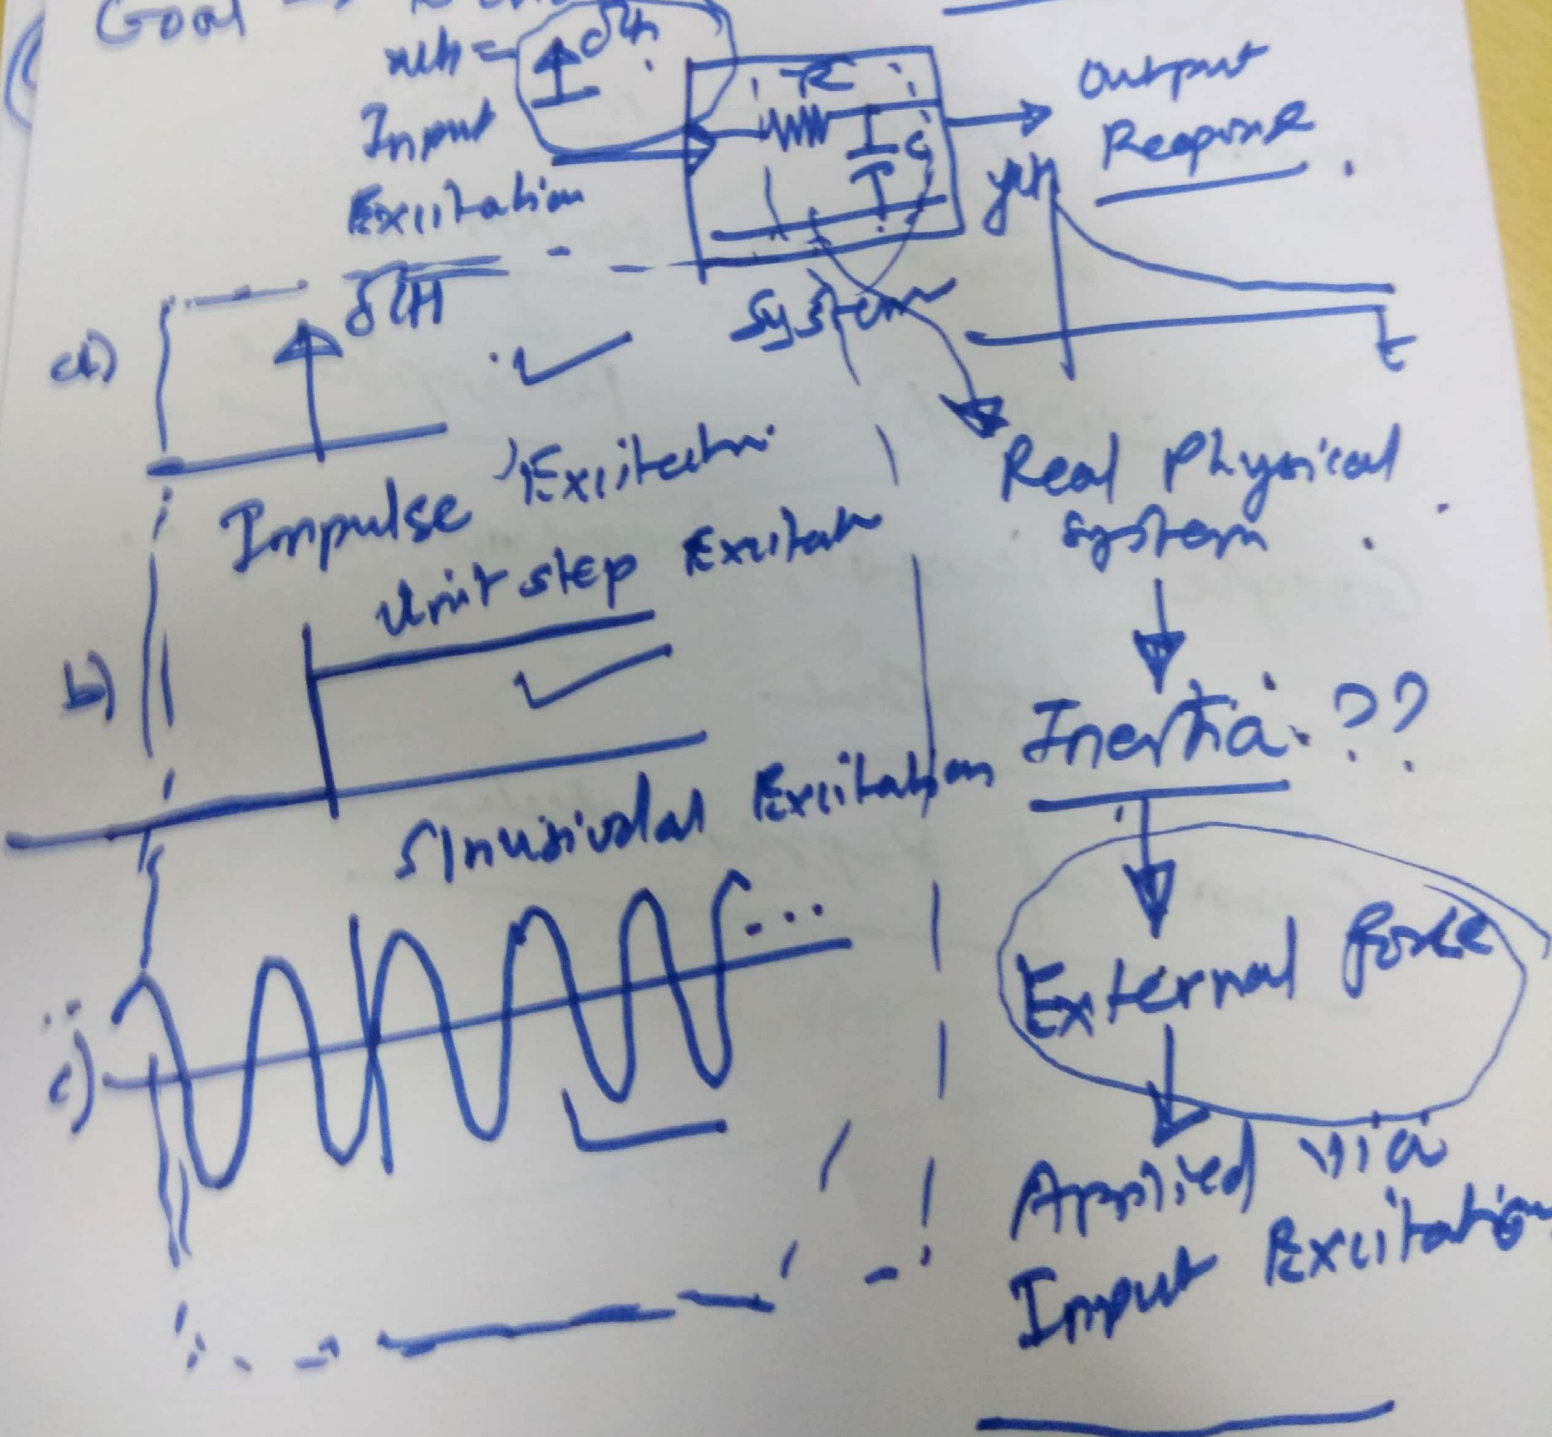 Goal →
x(t) =
δ(t)
Input
Excitation
R
C
Output
Response
y(t)
t
System
a)
δ(t)
Impulse Excitation
Real Physical
System
Unit step Excitation
b)
Inertia. ??
Sinusoidal Excitation
...
c)
External force
Applied via
Input Excitation